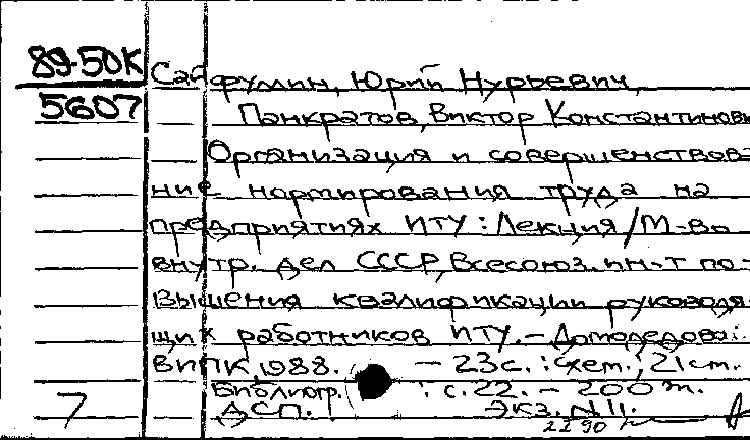 89-50К
5607
Сайфулин, Юрий Нурьевич,
Панкратов, Виктор Константинович
Организация и совершенствова-
ние нормирования труда на
предприятиях ИТУ : Лекция / М-во
внутр. дел СССР, Всесоюз. ин-т по-
вышения квалификации руководя-
щих работников ИТУ. – Домодедово :
ВИПК, 1988. – 23 с. : схем. ; 21 см.
Библиогр. : с. 22. – 200 т.
7 ДСП. Экз. N 11.